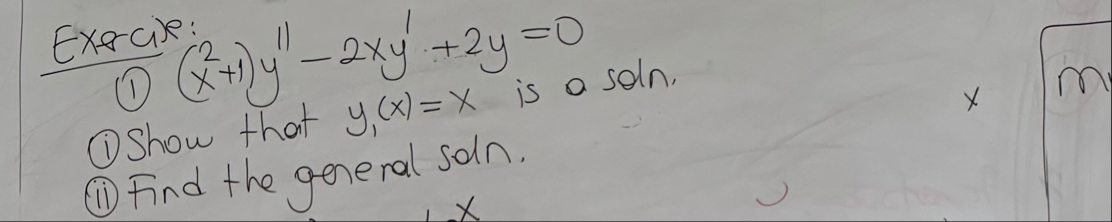 Exercise:
① (x²+1)y'' - 2xy' + 2y = 0
ⓘ Show that y₁(x) = x is a soln.
ⓘⓘ Find the general soln.
x
m
x